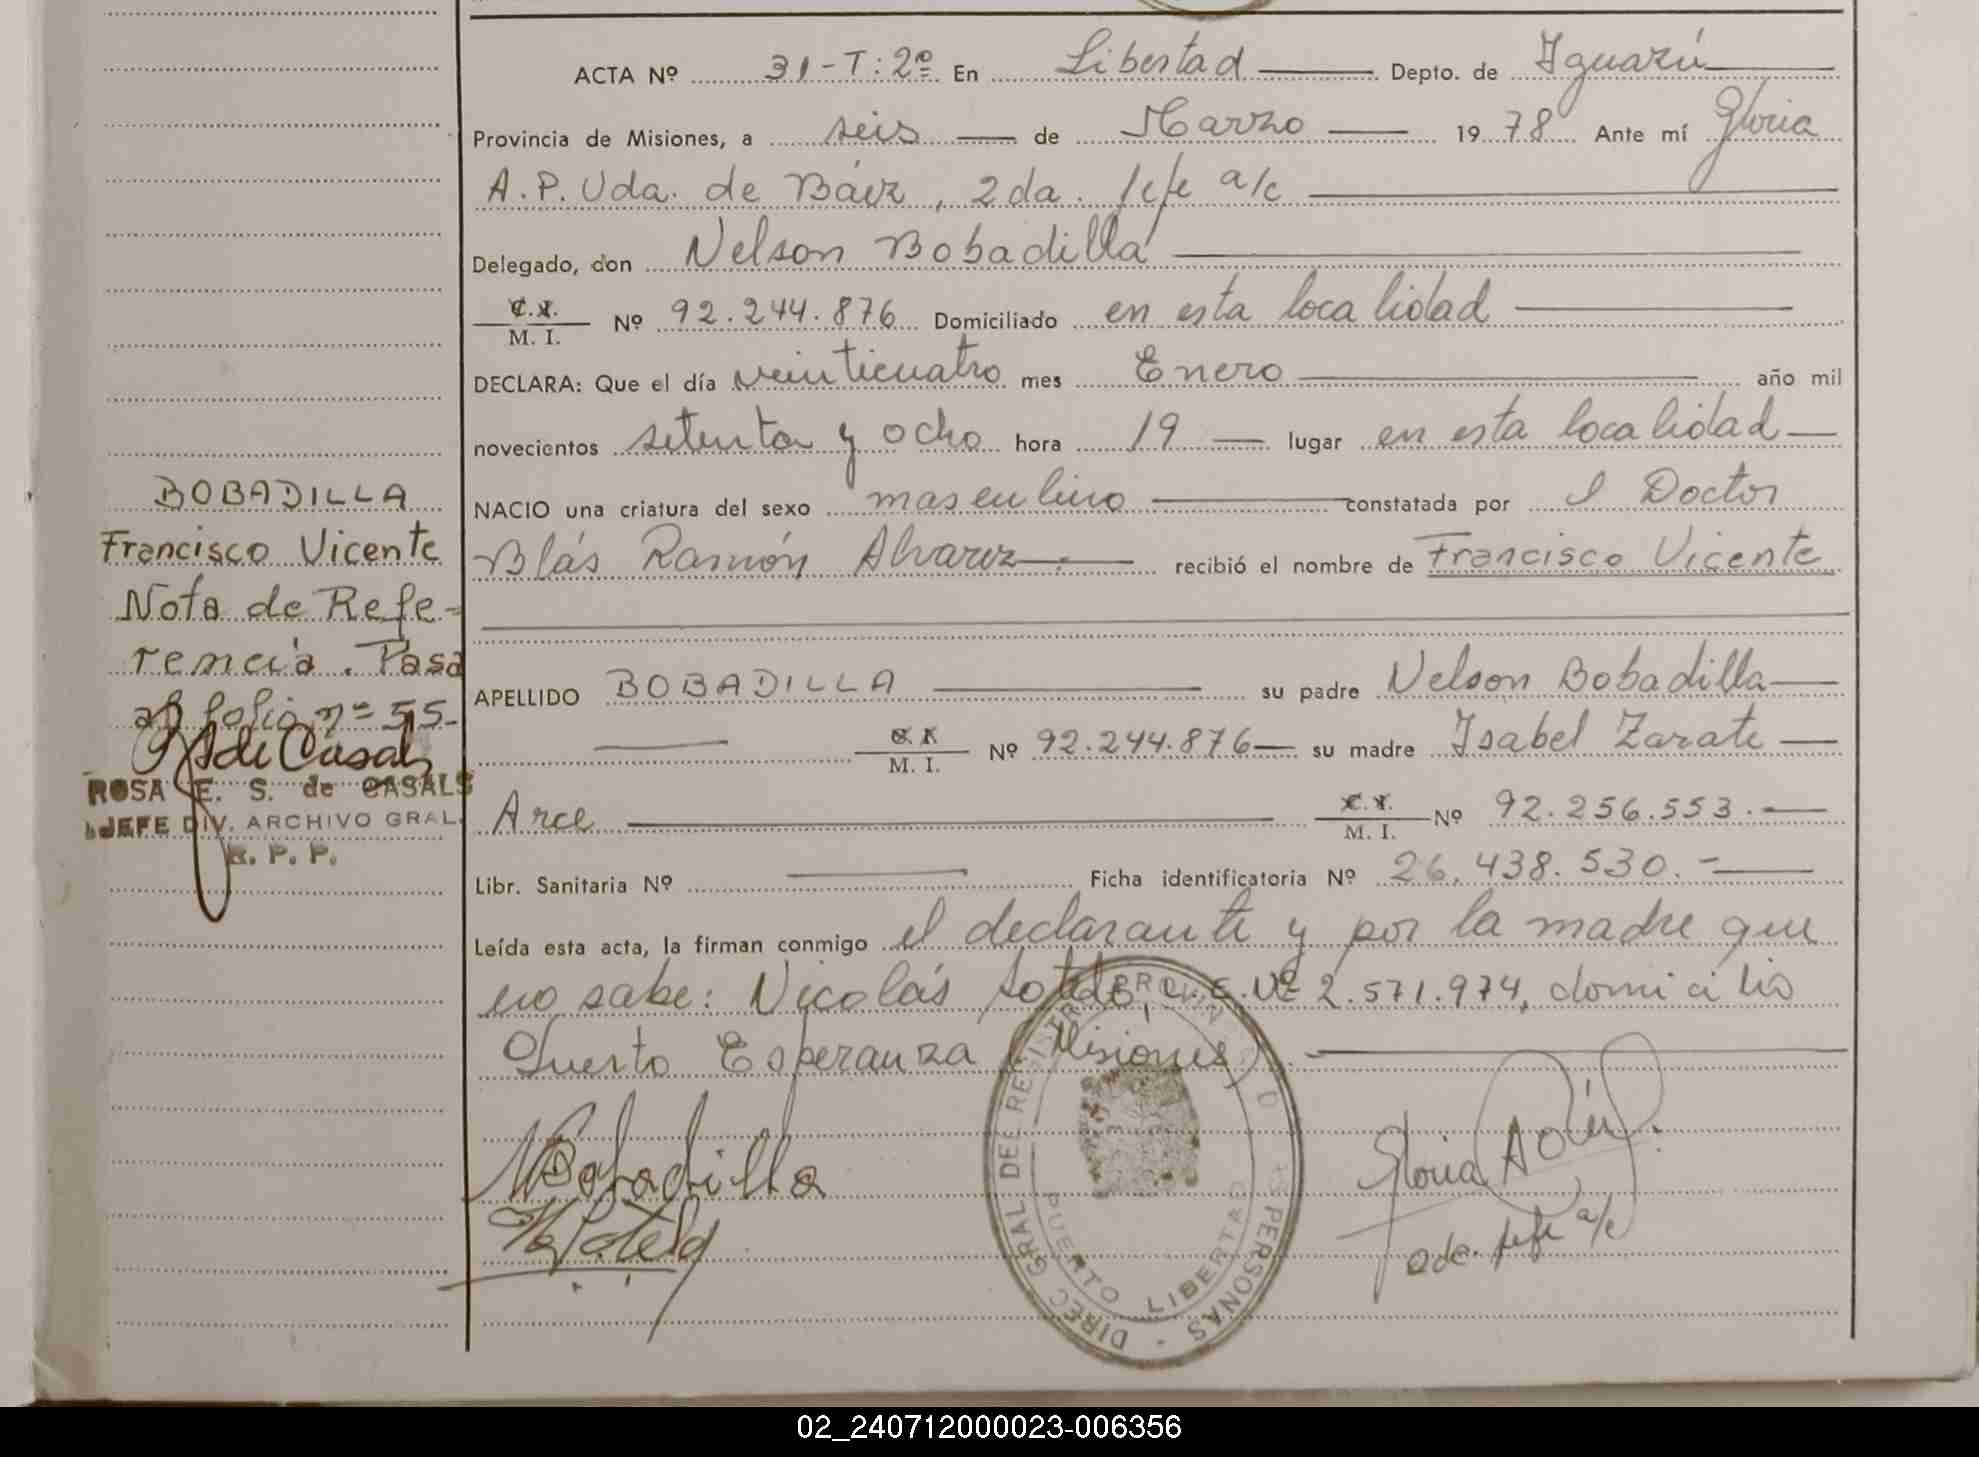 ACTA Nº 31-T:2º En Libertad Depto. de Iguazú
Provincia de Misiones, a seis de Marzo 1978 Ante mí Gloria
A.P. Vda. de Báez, 2da. Jefe a/c
Delegado, don Nelson Bobadilla
C.I.
M. I. Nº 92.244.876 Domiciliado en esta localidad
DECLARA: Que el día veinticuatro mes Enero año mil
novecientos setenta y ocho hora 19 lugar en esta localidad
NACIO una criatura del sexo masculino constatada por el Doctor
Blás Ramón Alvarez recibió el nombre de Francisco Vicente
APELLIDO BOBADILLA su padre Nelson Bobadilla
M. I. Nº 92.244.876 su madre Isabel Zarate
Arce C.I.
M. I. Nº 92.256.553.-
Libr. Sanitaria Nº Ficha identificatoria Nº 26.438.530.-
Leída esta acta, la firman conmigo el declarante y por la madre que
no sabe: Nicolás Sotelo, Nº 2.571.974, domicilio
Puerto Esperanza (Misiones).
NBobadilla
Gloria
2da. Jefe a/c
DIREC. GRAL. DEL REGISTRO PROVINCIAL D PERSONAS
PUERTO LIBERTAD
BOBADILLA
Francisco Vicente
Nota de Refe-
rencia. Pasa
al folio nº 55-
ROSA E. S. de CASALS
JEFE DIV. ARCHIVO GRAL.
R. P. P.
02_240712000023-006356